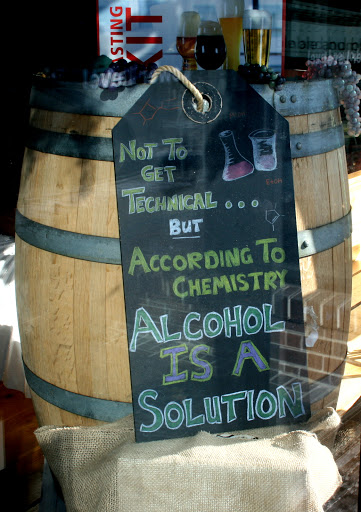 OSTING
KIT
NOT TO
GET
TECHNICAL ...
BUT
ACCORDING TO
CHEMISTRY
ALCOHOL
IS A
SOLUTION